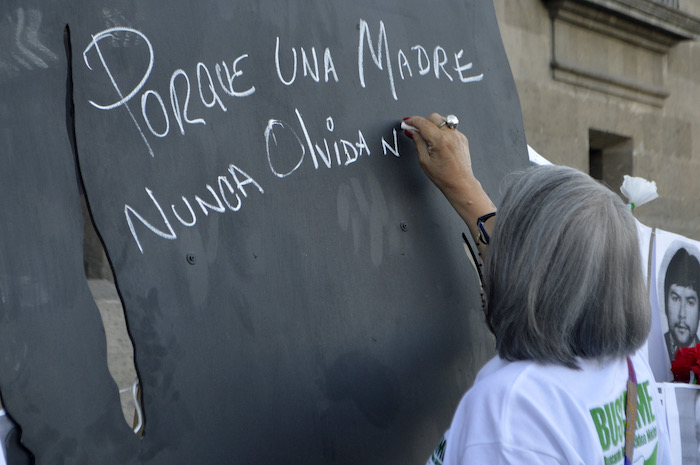 PORQUE UNA MADRE
NUNCA OLVIDA N